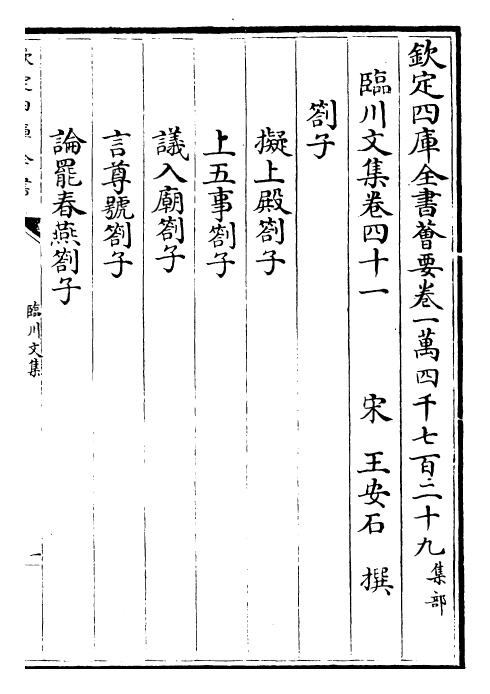 欽定四庫全書薈要卷一萬四千七百二十九集部
臨川文集卷四十一　宋　王安石　撰
劄子
擬上殿劄子
上五事劄子
議入廟劄子
言尊號劄子
論罷春燕劄子
欽定四庫全書
臨川文集
一